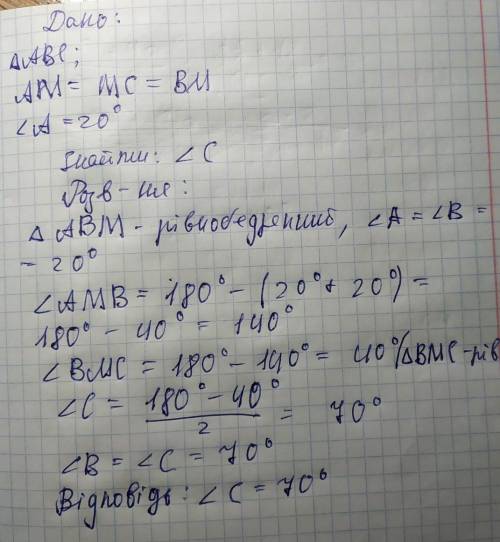 Дано:
△ABC;
AM = MC = BM
∠A = 20°
Знайти: ∠C
Розв-ня:
△ ABM - рівнобедрений, ∠A = ∠B =
= 20°
∠AMB = 180° - (20° + 20°) =
180° - 40° = 140°
∠BMC = 180° - 140° = 40° /△BMC - рів
∠C = (180° - 40°)/2 = 70°
∠B = ∠C = 70°
Відповідь: ∠C = 70°